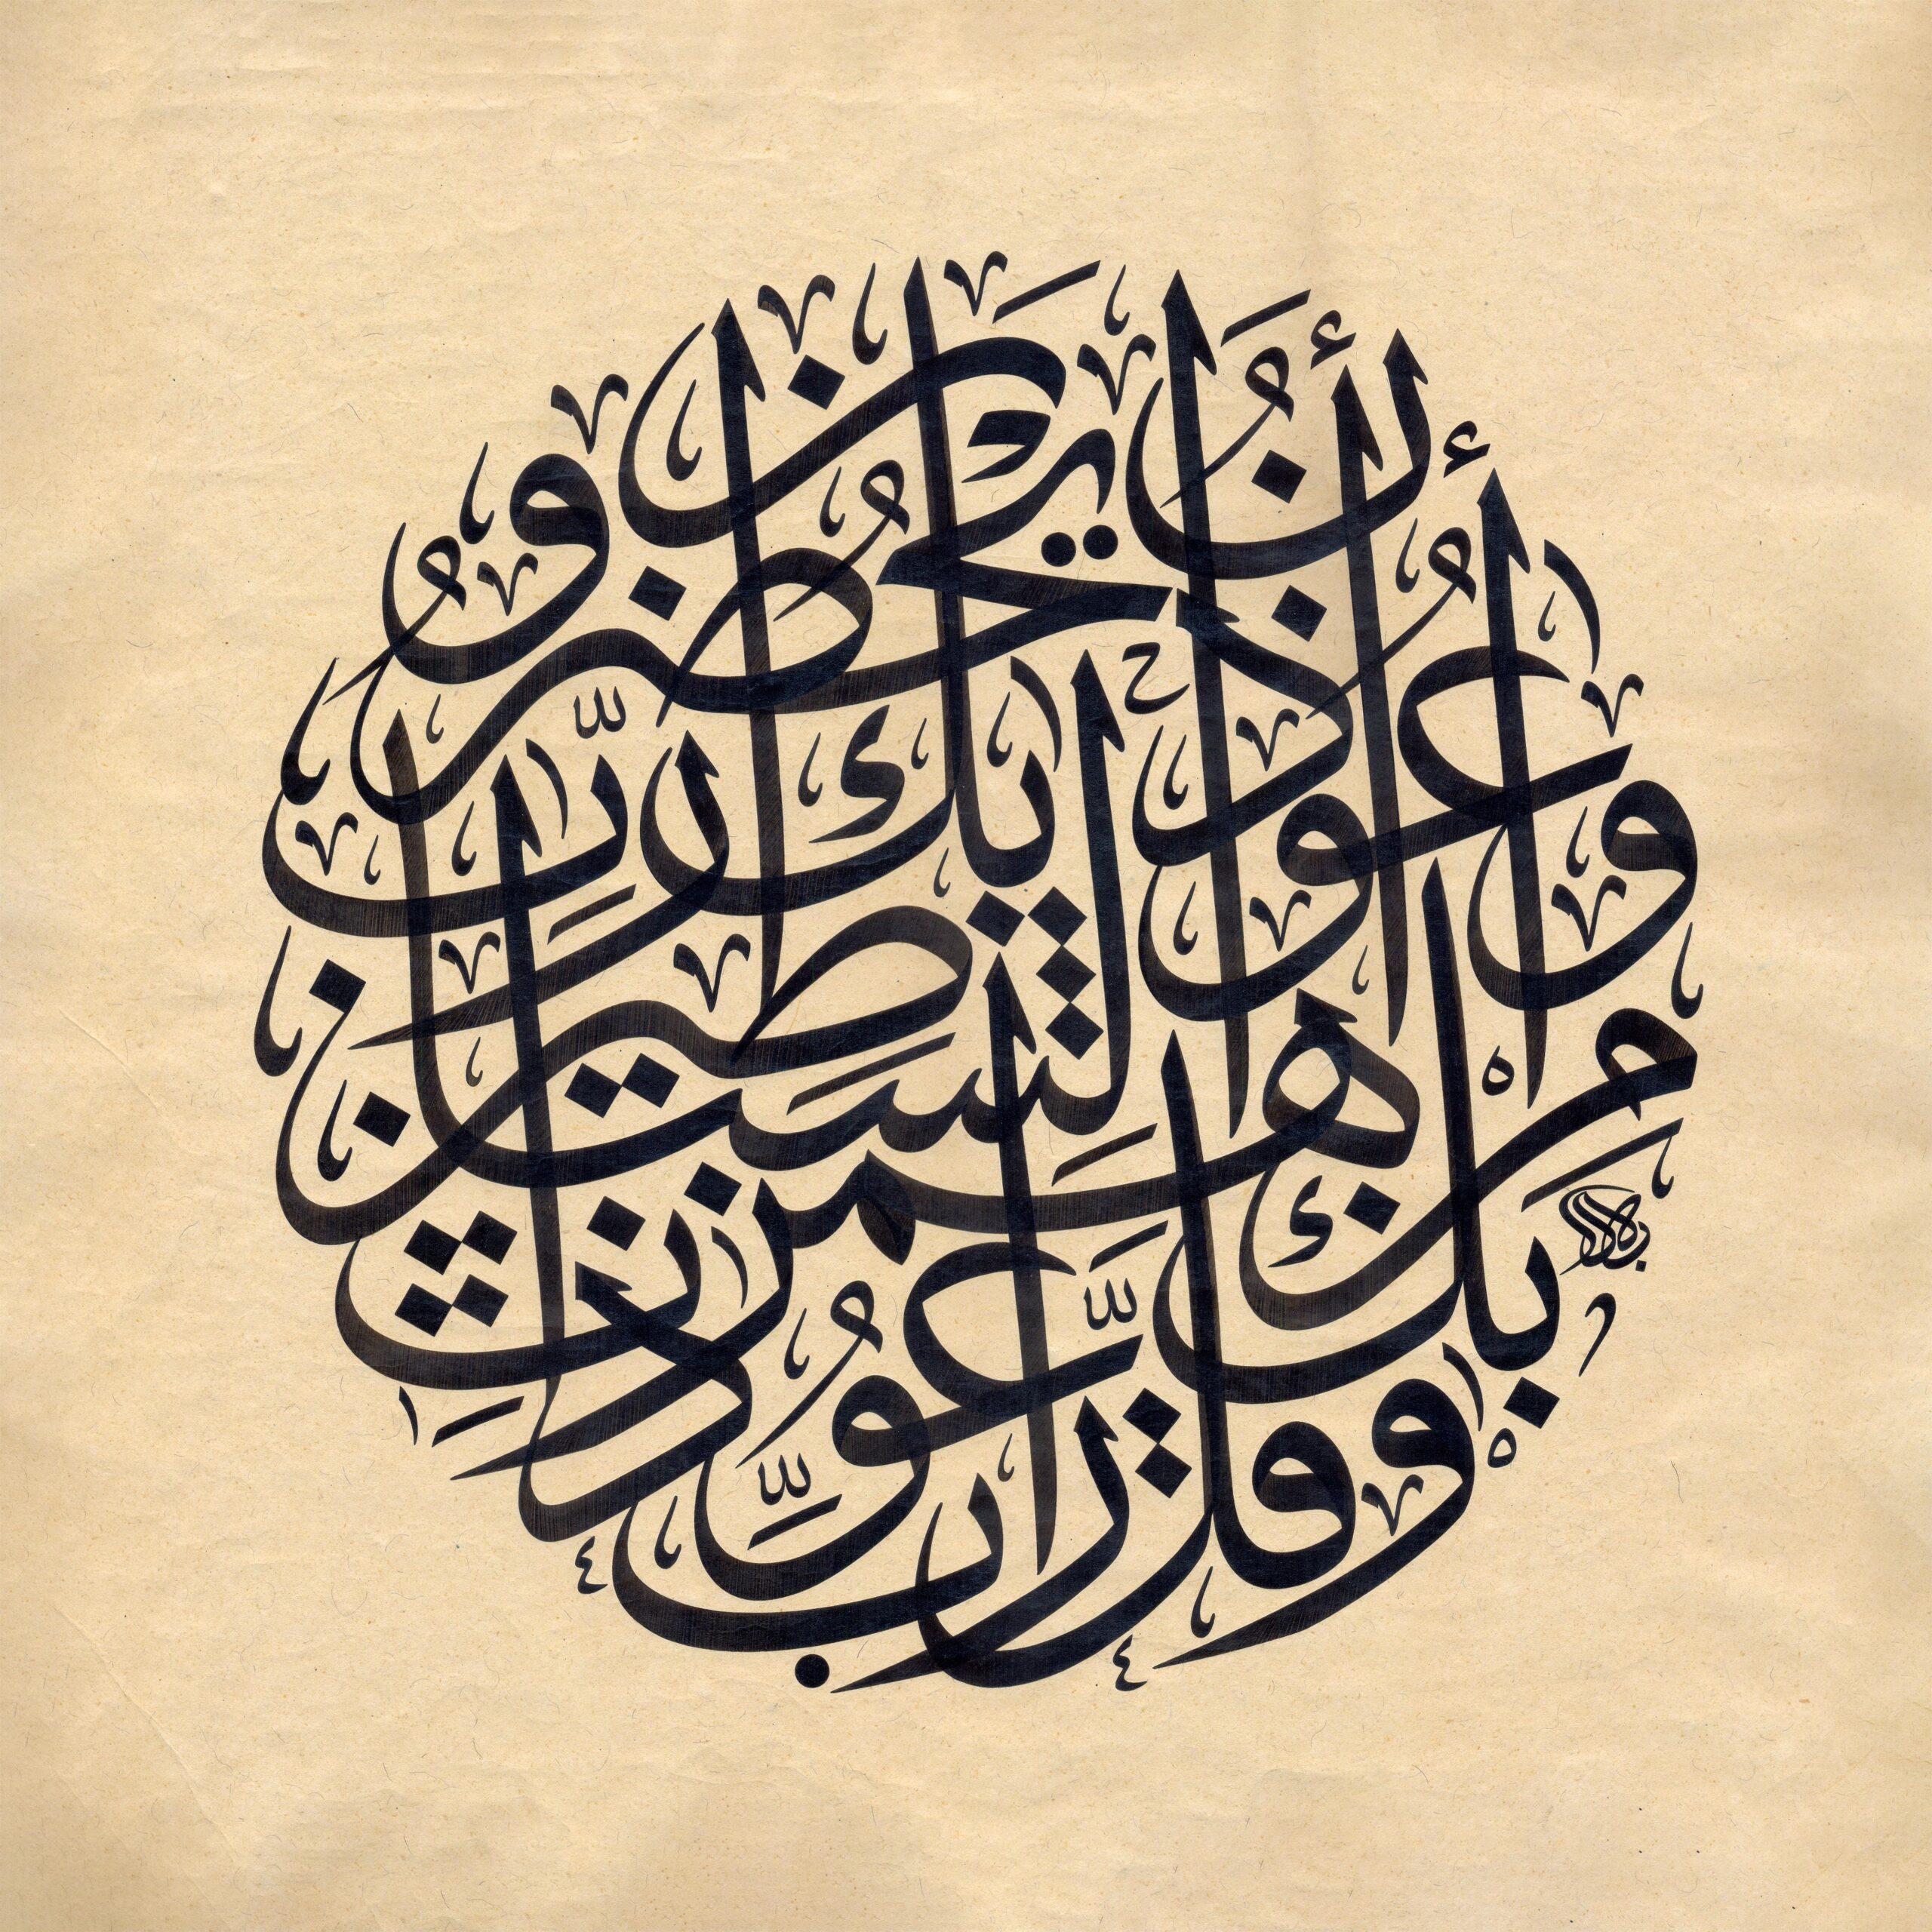 وَقُل رَّبِّ أَعُوذُ بِكَ مِنْ هَمَزَاتِ الشَّيَاطِينِ
وَأَعُوذُ بِكَ رَبِّ أَن يَحْضُرُونِ